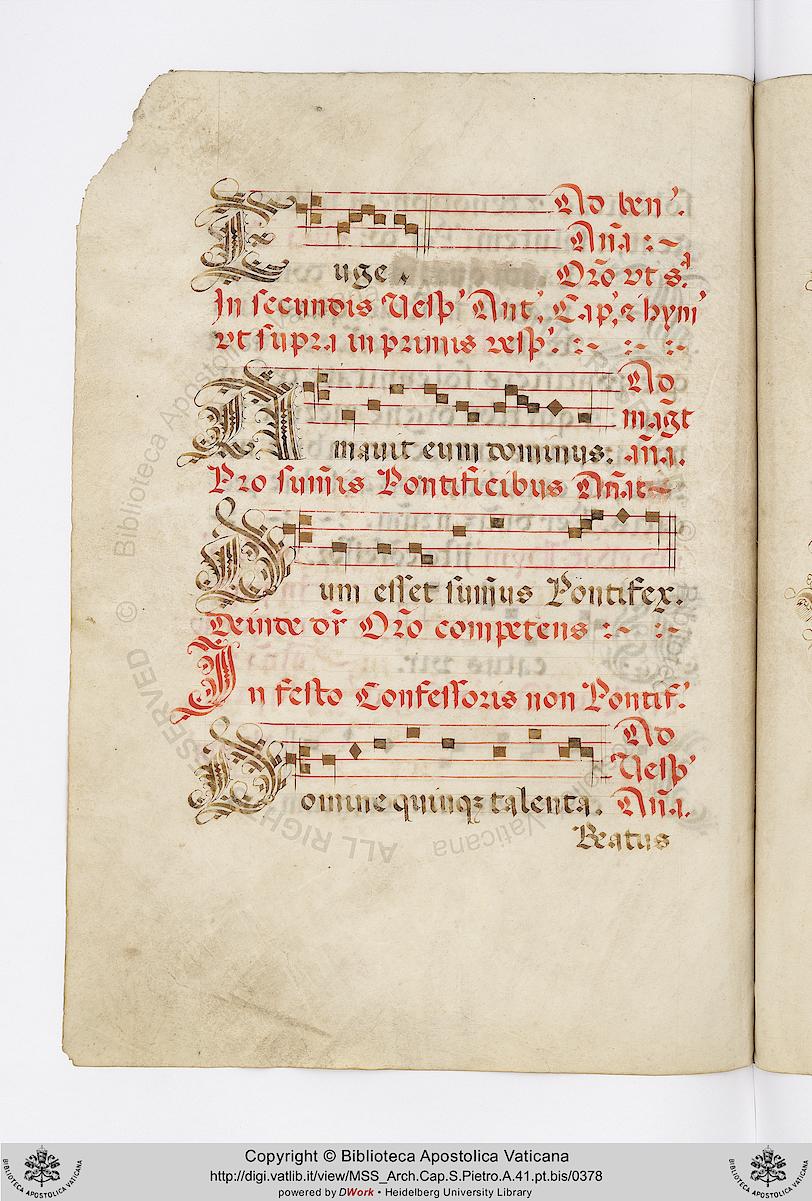 Ad ben'.
Aña :~
Euge. Orõ vt s.ª
In secundis Vesp' Ant', Cap', & hym'
vt supra in primis vesp'. :~ :~ :~
Ad
magt
Amauit eum dominus: aña.
Pro sum̃is Pontificibus Añae
Dum esset sum̃us Pontifex.
Deinde dr̃ Orõ competens :~ :~
In festo Confessoris non Pontif.'
Ad
Vesp'
Domine quinqꝫ talenta. Aña.
Beatus
© Biblioteca Apostolica Vaticana
ALL RIGHTS RESERVED
Copyright © Biblioteca Apostolica Vaticana
http://digi.vatlib.it/view/MSS_Arch.Cap.S.Pietro.A.41.pt.bis/0378
powered by DWork • Heidelberg University Library
BIBLIOTECA APOSTOLICA VATICANA
BIBLIOTECA APOSTOLICA VATICANA